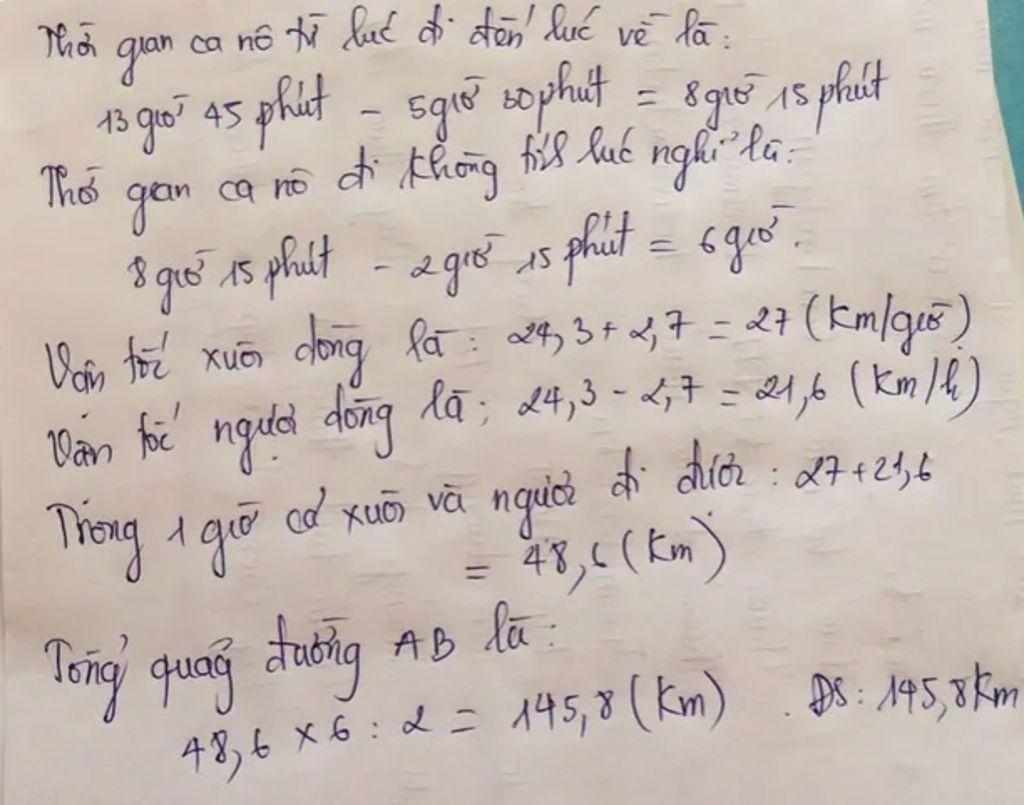 Thời gian ca nô từ lúc đi đến lúc về là:
13 giờ 45 phút - 5 giờ 30 phút = 8 giờ 15 phút
Thời gian ca nô đi không tính lúc nghỉ là:
8 giờ 15 phút - 2 giờ 15 phút = 6 giờ.
Vận tốc xuôi dòng là: 24,3 + 2,7 = 27 (Km/giờ)
Vận tốc ngược dòng là: 24,3 - 2,7 = 21,6 (Km/h)
Trong 1 giờ cả xuôi và ngược đi được: 27 + 21,6
= 48,6 (Km)
Tổng quãng đường AB là:
48,6 x 6 : 2 = 145,8 (Km) . ĐS: 145,8 Km